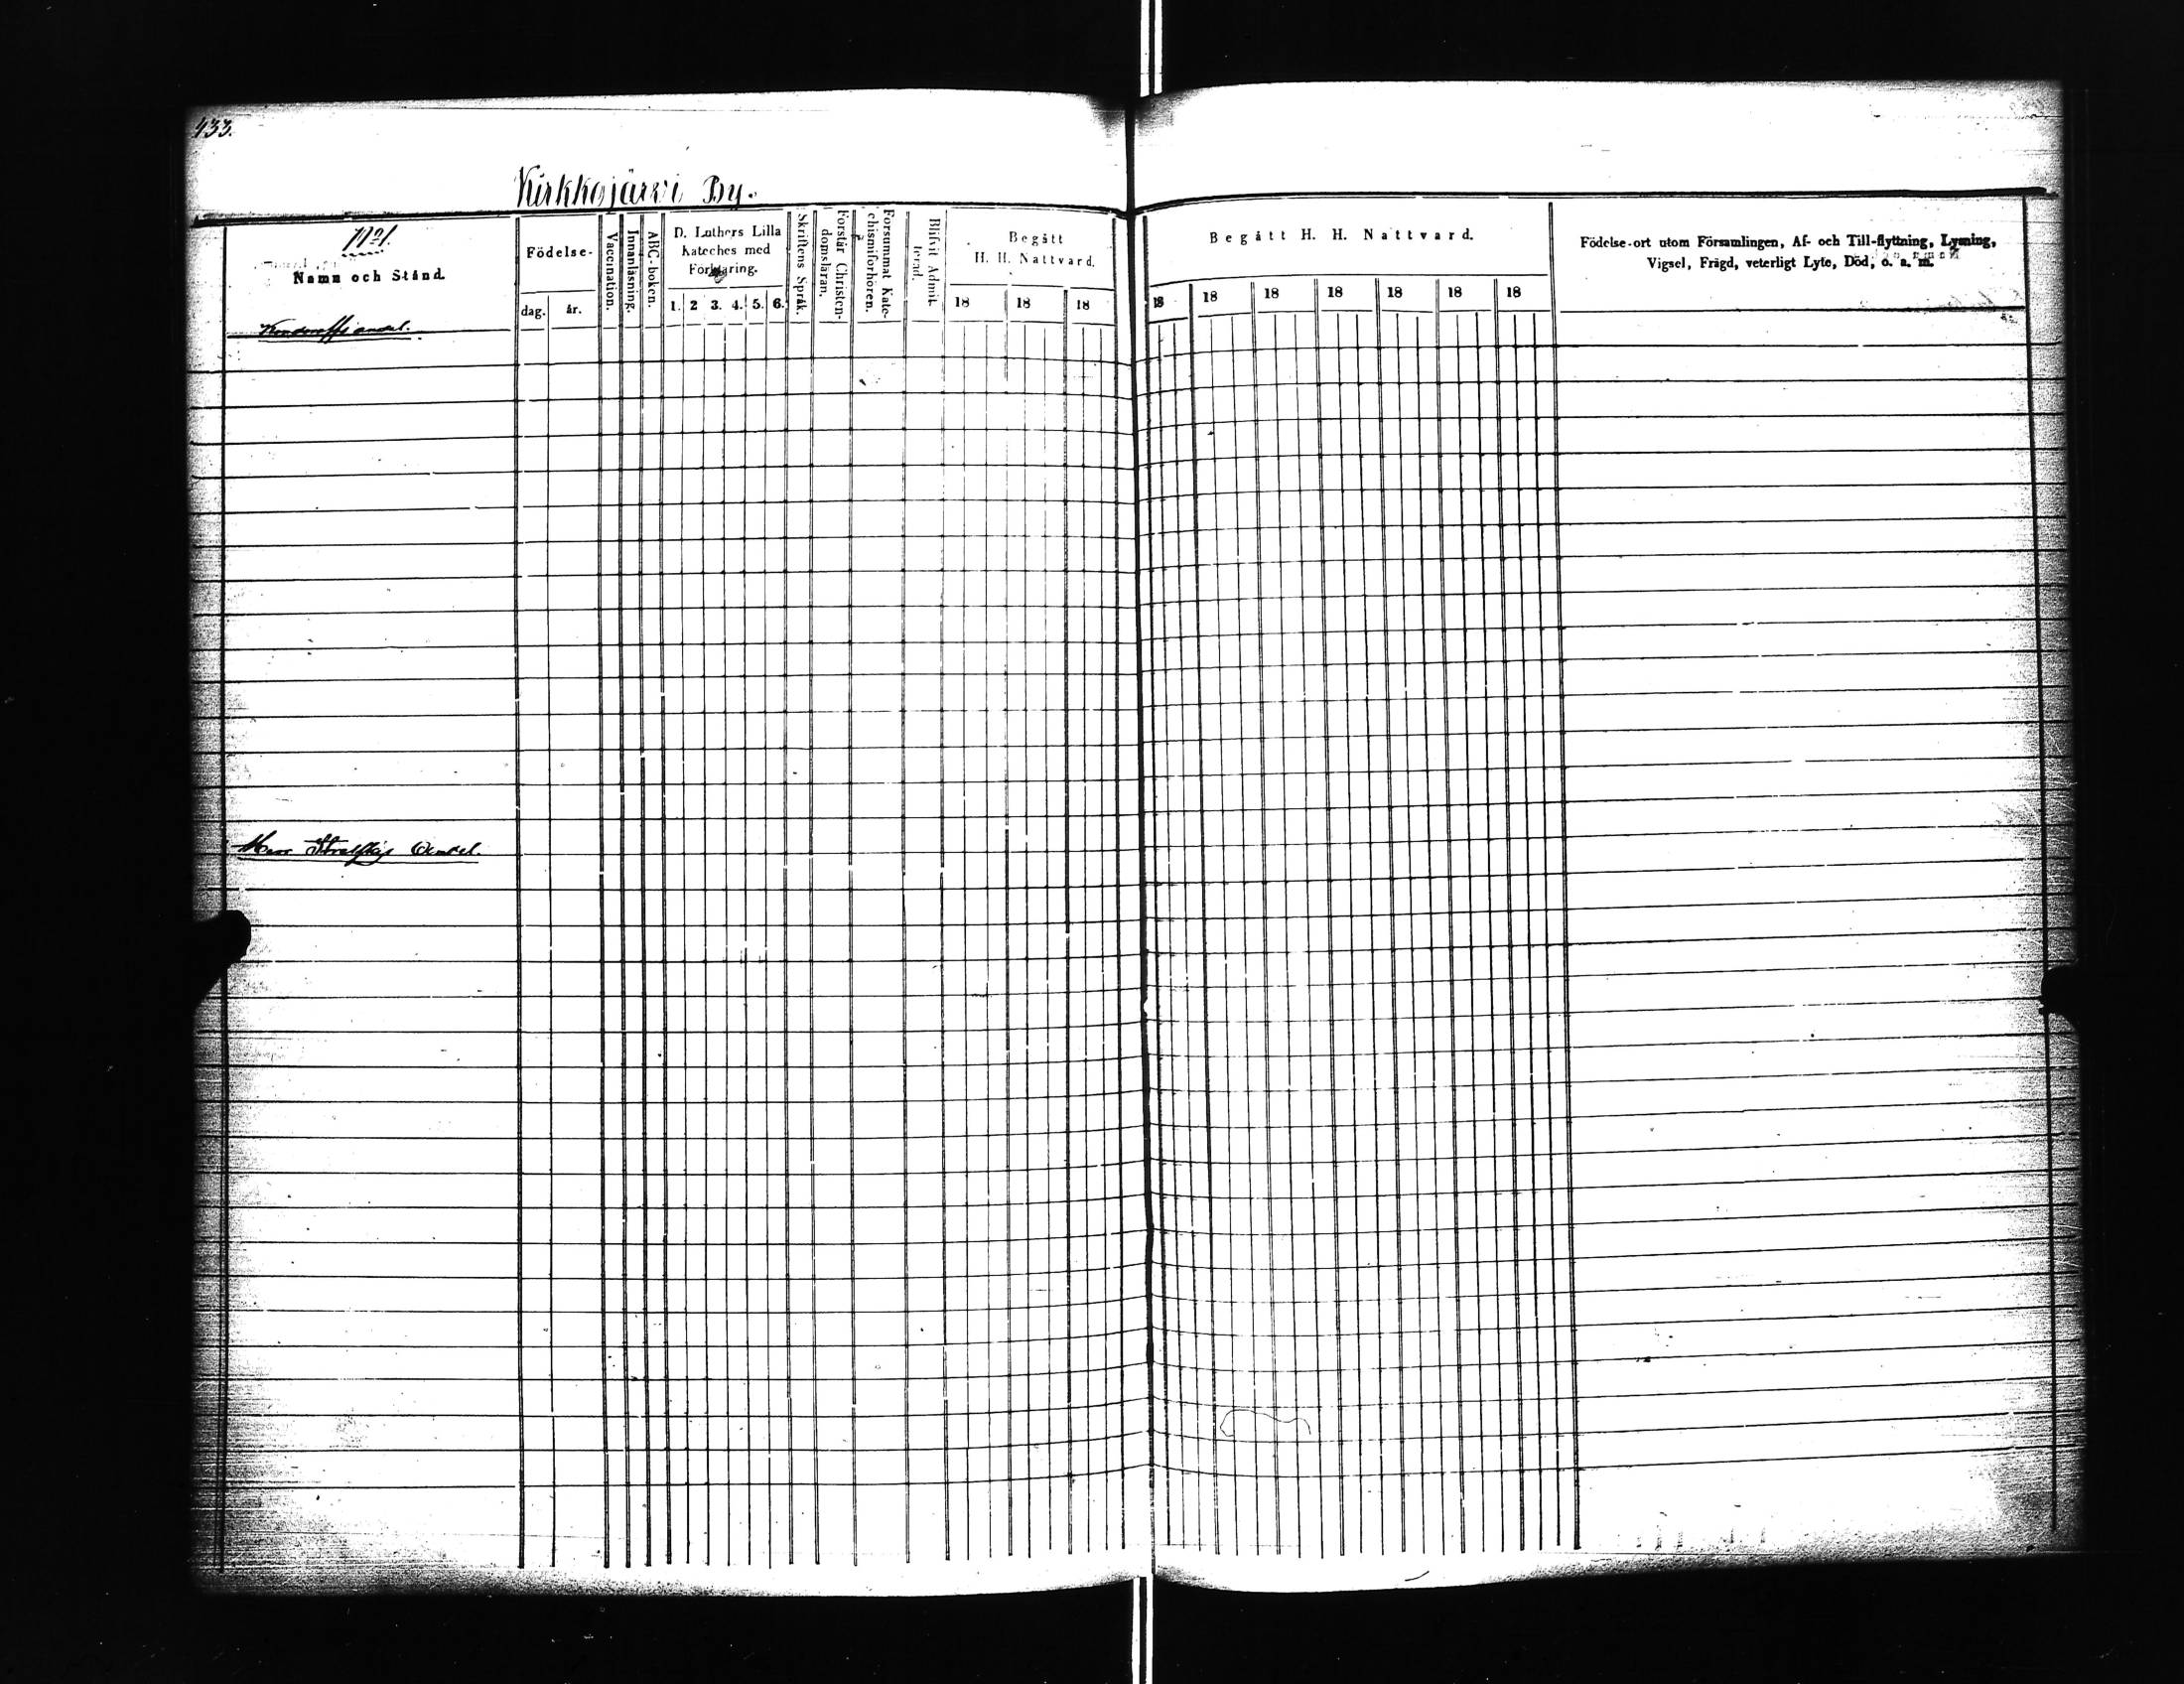 433.
Kirkkojärvi By.
No 1.
Namn och Stånd.
Födelse-
dag.
år.
Vaccination.
Innanläsning.
ABC-boken.
D. Luthers Lilla
Kateches med
Förklaring.
1. 2 3. 4. 5. 6.
Skriftens Språk.
Förstår Christen-
domsläran.
Försummat Kate-
chismiförhören.
Blifvit Admit-
terad.
Begått
H. H. Nattvard.
18 18 18
Begått H. H. Nattvard.
18 18 18 18 18 18 18
Födelse-ort utom Församlingen, Af- och Till-flyttning, Lysning,
Vigsel, Frägd, veterligt Lyte, Död, o. a. m.
andel.
Andel.